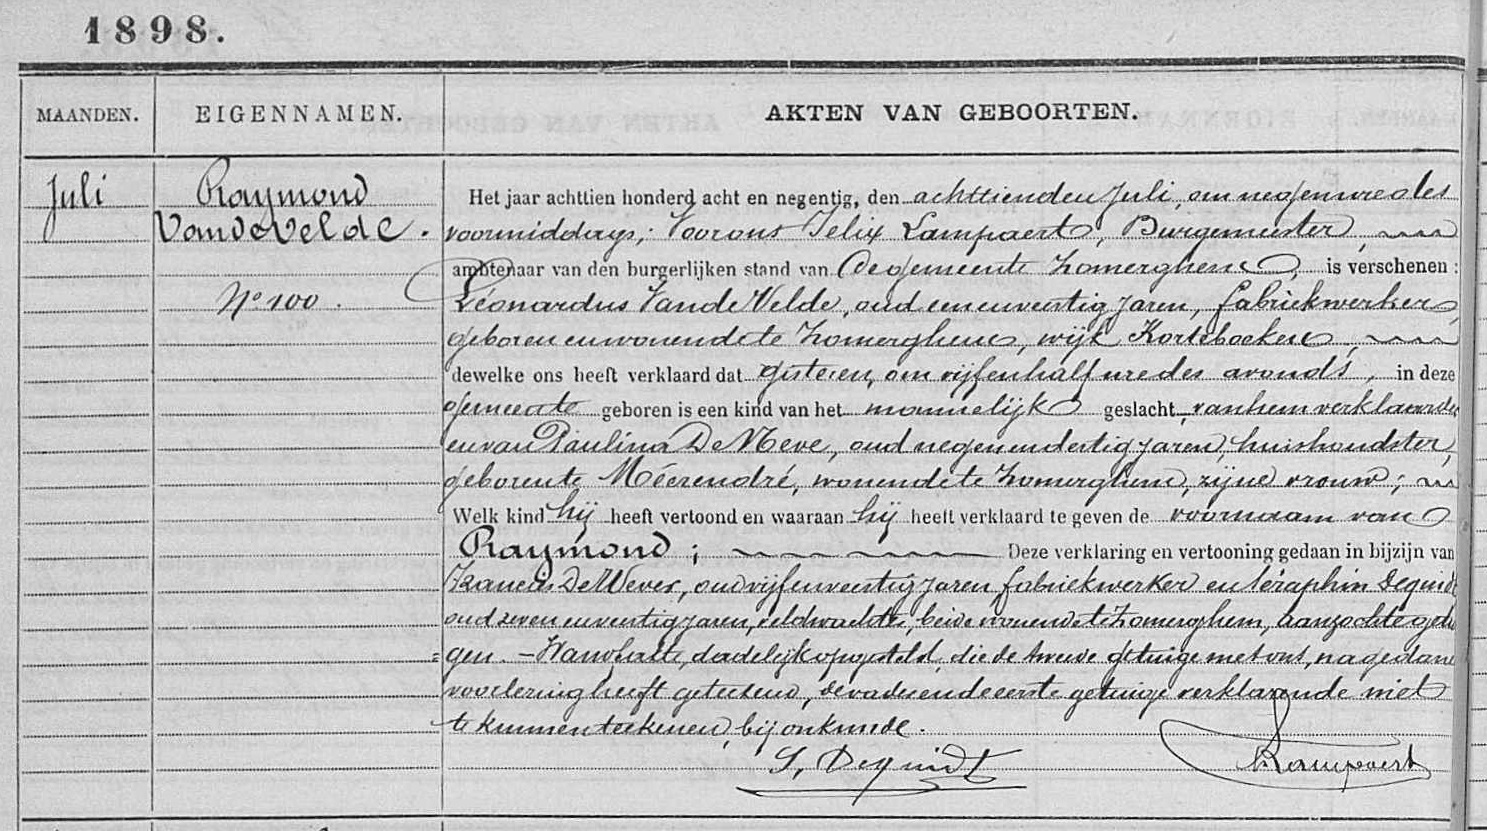 1898.
MAANDEN. EIGENNAMEN. AKTEN VAN GEBOORTEN.
Juli
Raymond
Van de Velde.
No 100.
Het jaar achttien honderd acht en negentig, den achttienden Juli, om negen ure des
voormiddags; Voor ons Felix Lampaert, Burgemeester,
ambtenaar van den burgerlijken stand van de gemeente Zomerghem, is verschenen:
Léonardus Van de Velde, oud een en veertig jaren, fabriekwerker,
geboren en wonende te Zomerghem, wijk Korteboeken,
dewelke ons heeft verklaard dat gisteren, om vijf en half ure des avonds, in deze
gemeente geboren is een kind van het mannelijk geslacht, van hem verklaarder
en van Paulina De Neve, oud negen en dertig jaren, huishoudster,
geboren te Méerendré, wonende te Zomerghem, zijne vrouw;
Welk kind hij heeft vertoond en waaraan hij heeft verklaard te geven de voornaam van
Raymond; Deze verklaring en vertooning gedaan in bijzijn van
Francis De Wever, oud vijf en veertig jaren, fabriekwerker en Séraphin Dequidt
oud zeven en veertig jaren, veldwachter, beide wonende te Zomerghem, aanzochte getui
=gen. - Waarvan akte, dadelijk opgesteld, die de tweede getuige met ons, na gedane
voorlezing heeft geteekend, de vader en de eerste getuige verklarende niet
te kunnen teekenen, bij onkunde.
S, Dequidt Lampaert